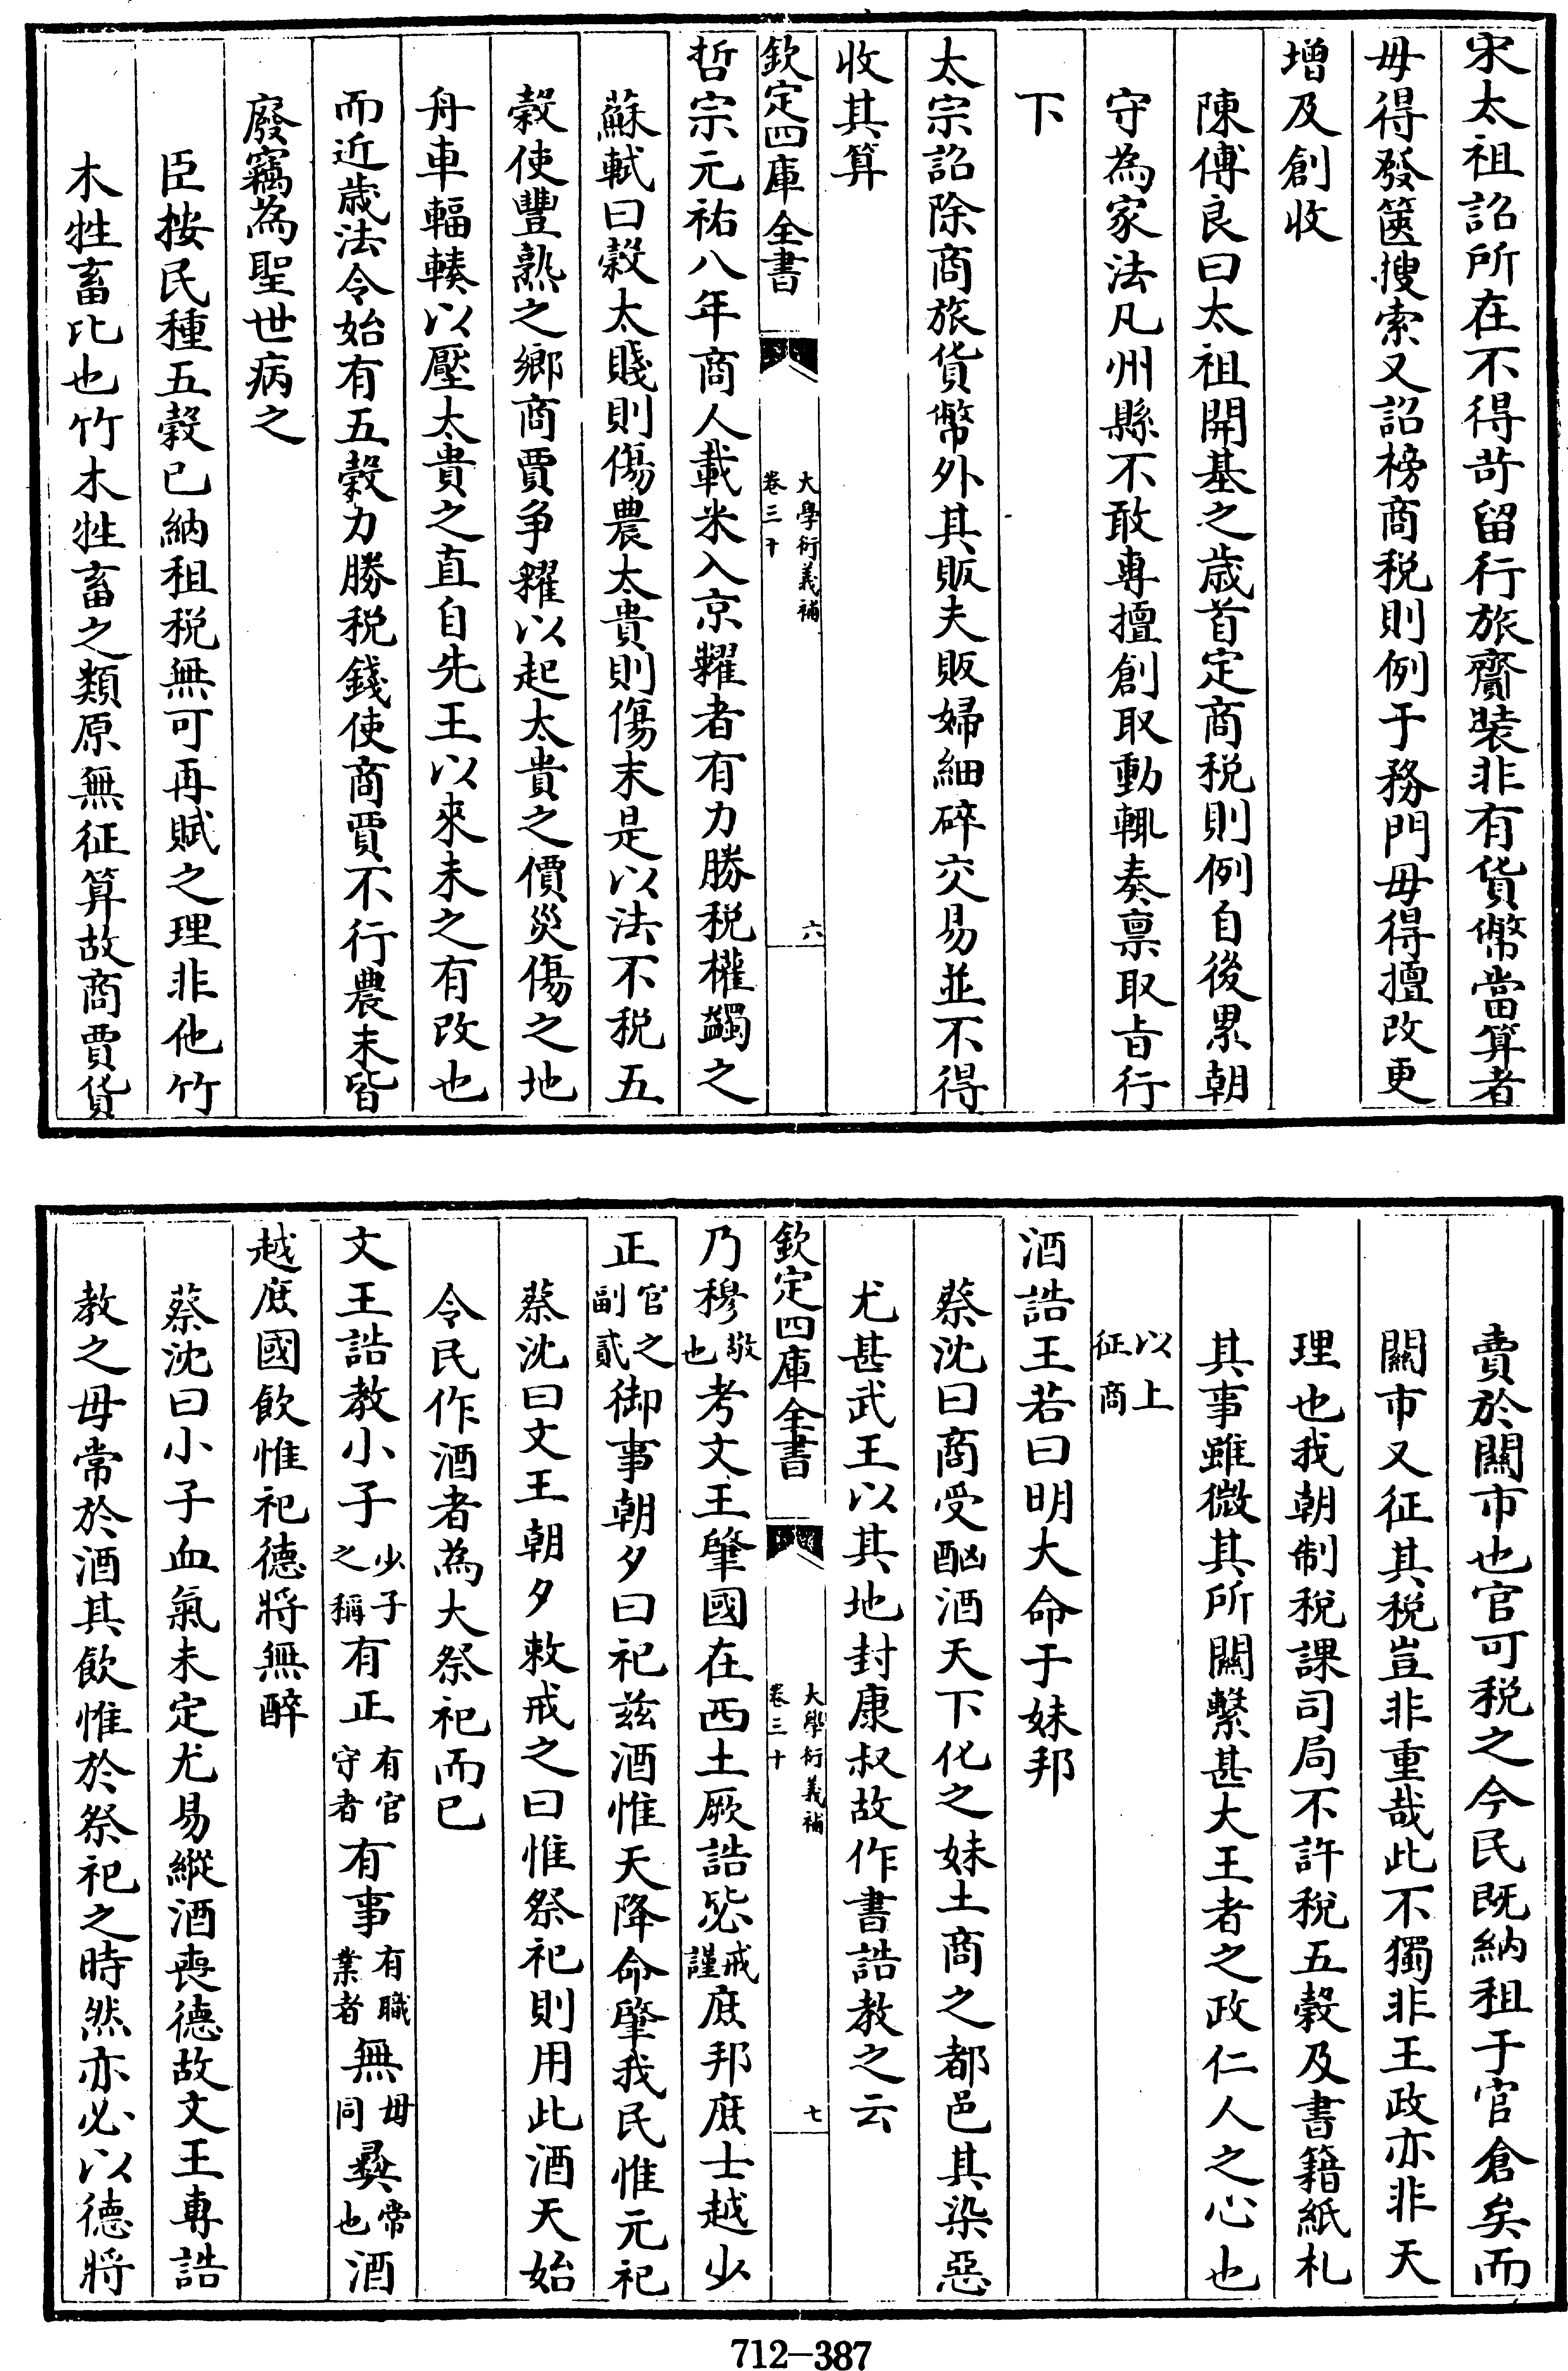 宋太祖詔所在不得苛留行旅齎裝非有貨幣當算者
毋得發篋搜索又詔榜商税則例于務門毋得擅改更
增及創收
陳傅良曰太祖開基之歲首定商税則例自後累朝
守為家法凡州縣不敢專擅創取動輒奏禀取㫖行
下
太宗詔除商旅貨幣外其販夫販婦細碎交易並不得
收其算
欽定四庫全書
大學衍義補
卷三十
六
哲宗元祐八年商人載米入京糶者有力勝税權蠲之
蘇軾曰穀太賤則傷農太貴則傷末是以法不税五
穀使豐熟之鄉商賈争糴以起太貴之價災傷之地
舟車輻輳以壓太貴之直自先王以來未之有改也
而近歲法令始有五穀力勝税錢使商賈不行農末皆
廢竊為聖世病之
臣按民種五穀已納租税無可再賦之理非他竹
木牲畜比也竹木牲畜之類原無征算故商賈貨
賣於關市也官可税之今民既納租于官倉矣而
關市又征其税豈非重哉此不獨非王政亦非天
理也我朝制税課司局不許税五穀及書籍紙札
其事雖微其所關繫甚大王者之政仁人之心也
以上
征商
酒誥王若曰明大命于妹邦
蔡沈曰商受酗酒天下化之妹土商之都邑其染惡
尤甚武王以其地封康叔故作書誥教之云
欽定四庫全書
大學衍義補
卷三十
七
乃穆敬也考文王肇國在西土厥誥毖戒謹庶邦庶士越少
正官之副貳之御事朝夕曰祀兹酒惟天降命肇我民惟元祀
蔡沈曰文王朝夕敕戒之曰惟祭祀則用此酒天始
令民作酒者為大祭祀而已
文王誥教小子少子之稱有正有官守者有事有職業者無毋同彛常也酒
越庶國飲惟祀德將無醉
蔡沈曰小子血氣未定尤易縱酒喪德故文王專誥
教之毋常於酒其飲惟於祭祀之時然亦必以德將
712-387